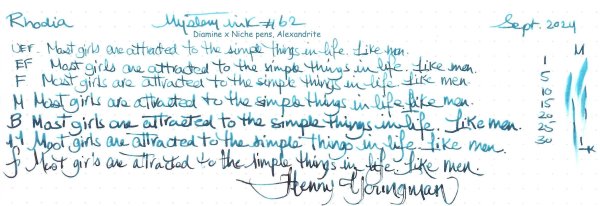 Rhodia Mystery ink #62 Sept. 2024
Diamine x Niche pens, Alexandrite
UEF. Most girls are attracted to the simple things in life. Like men. M
EF Most girls are attracted to the simple things in life. Like men. 1
F Most girls are attracted to the simple things in life. Like men. 5
10
M Most girls are attracted to the simple things in life. Like men. 15
20
B Most girls are attracted to the simple things in life. Like men. 25
Most girls are attracted to the simple things in life. Like men. 30
f Most girls are attracted to the simple things in life. Like men.
Henny Youngman